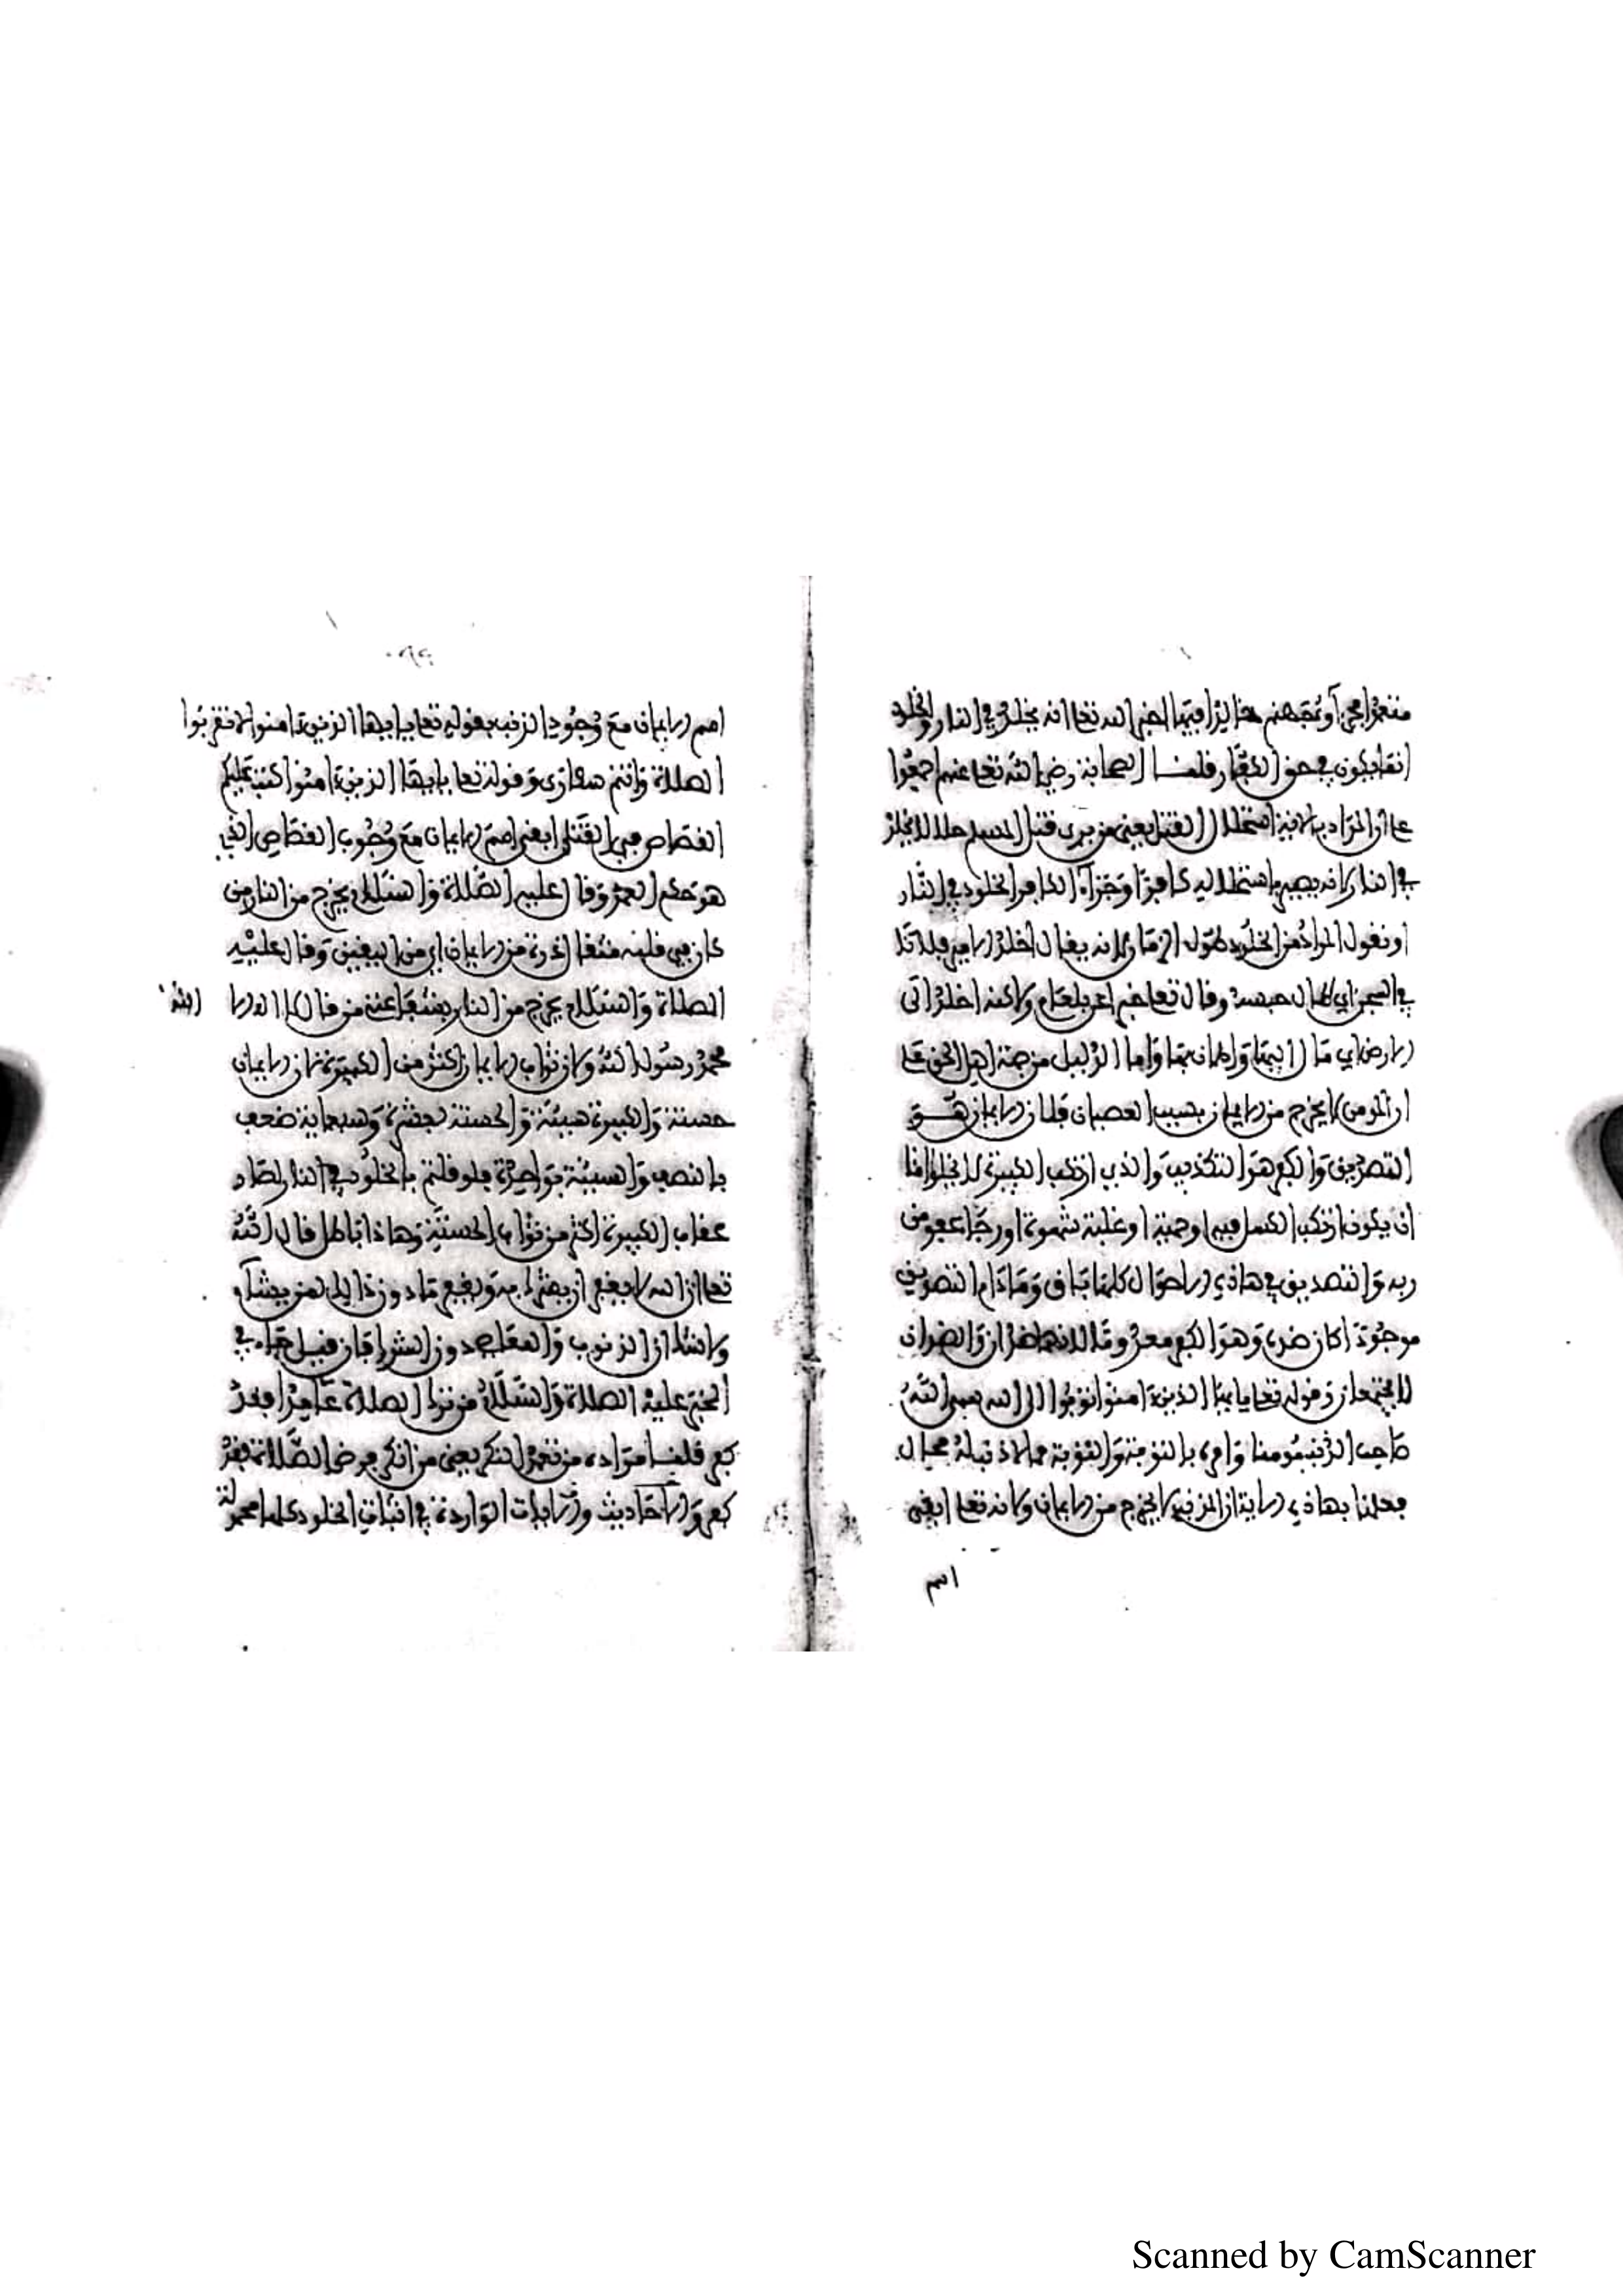 متعمدا فجزآوه جهنم خالدا فيها اخبر الله تعا انه يخلد في النار والخلود
انما يكون في حق الكفار قلنا الصحابة رضي الله تعا عنهم اجمعوا
علي ان المراد بالاية استحلال القتل يعني من يرى قتل المسلم حلالا يخلد
في النار لانه يصير باستحلاله كافرا وجزآء الكافر الخلود في النار
او نقول المراد من الخلود طول الزمان لانه يقال اخلد الامير فلانا
في السجن اي طال حبسه وقال تعا خبرا عن بلعام ولاكنه اخلد الى
الارض اي مال اليها واطمان بها واما الدليل من جهة اهل الحق على
ان المومن لا يخرج من الايمان بسبب العصيان قلنا ان الايمان هــو
التصديق والكفر هو التكذيب والذي ارتكب الكبيرة لا يخلوا اما
ان يكون ارتكب لكسل فيه او حمية او غلبة شهوة او رجا عفو من
ربه والتصديق في هاذه الاحوال كلها باق وما دام التصديق
موجودا كان ضده وهو الكفر معدوما لانهما ضدان والضدان
لا يجتمعان وقوله تعا يا ايها الذين ءامنوا توبوا الى الله سمى الله
صاحب الذنب مومنا وامره بالتوبة والتوبة بما لا ذنب له محال
فعلمنا بهاذه الاية ان الذنب لا يخرج من الايمان ولانه تعا ابقى
اسم
اسم الايمان مع وجود الذنب بقوله تعا يا ايها الذين ءامنوا لا تقربوا
الصلاة وانتم سكارى وقوله تعا يا ايها الذين ءامنوا كتب عليكم
القصاص في القتلى ابقى اسم الايمان مع وجوب القصاص الذي
هو حكم العمد وقال عليه الصلاة والسلام يخرج من النار من
كان في قلبه مثقال ذرة من الايمان اي من اليقين وقال عليه
الصلاة والسلام يخرج من النار بشفاعتي من قال لا اله الا الله
محمد رسول الله ولان ثواب الايمان اكثر من الكبيرة لان الايمان
حسنة والكبيرة سيئة والحسنة بعشرة وسبعماية ضعف
بالنص والسيئة بواحدة فلو قلتم بالخلود في النار لصار
عقاب الكبيرة اكثر من ثواب الحسنة وهاذا باطل قال الله
تعا ان الله لا يغفر ان يشرك به ويغفر ما دون ذالك لمن يشآء
ولا شك ان الذنوب والمعاصي دون الشرك فان قيل جاء في
الخبر عليه الصلاة والسلام من ترك الصلاة عامدا فقد
كفر قلنا مراده من تعمد الترك يعني من انكر فرض الصلاة فقد
كفر والاحاديث والايات الواردة في اثبات الخلود كلها محمولة